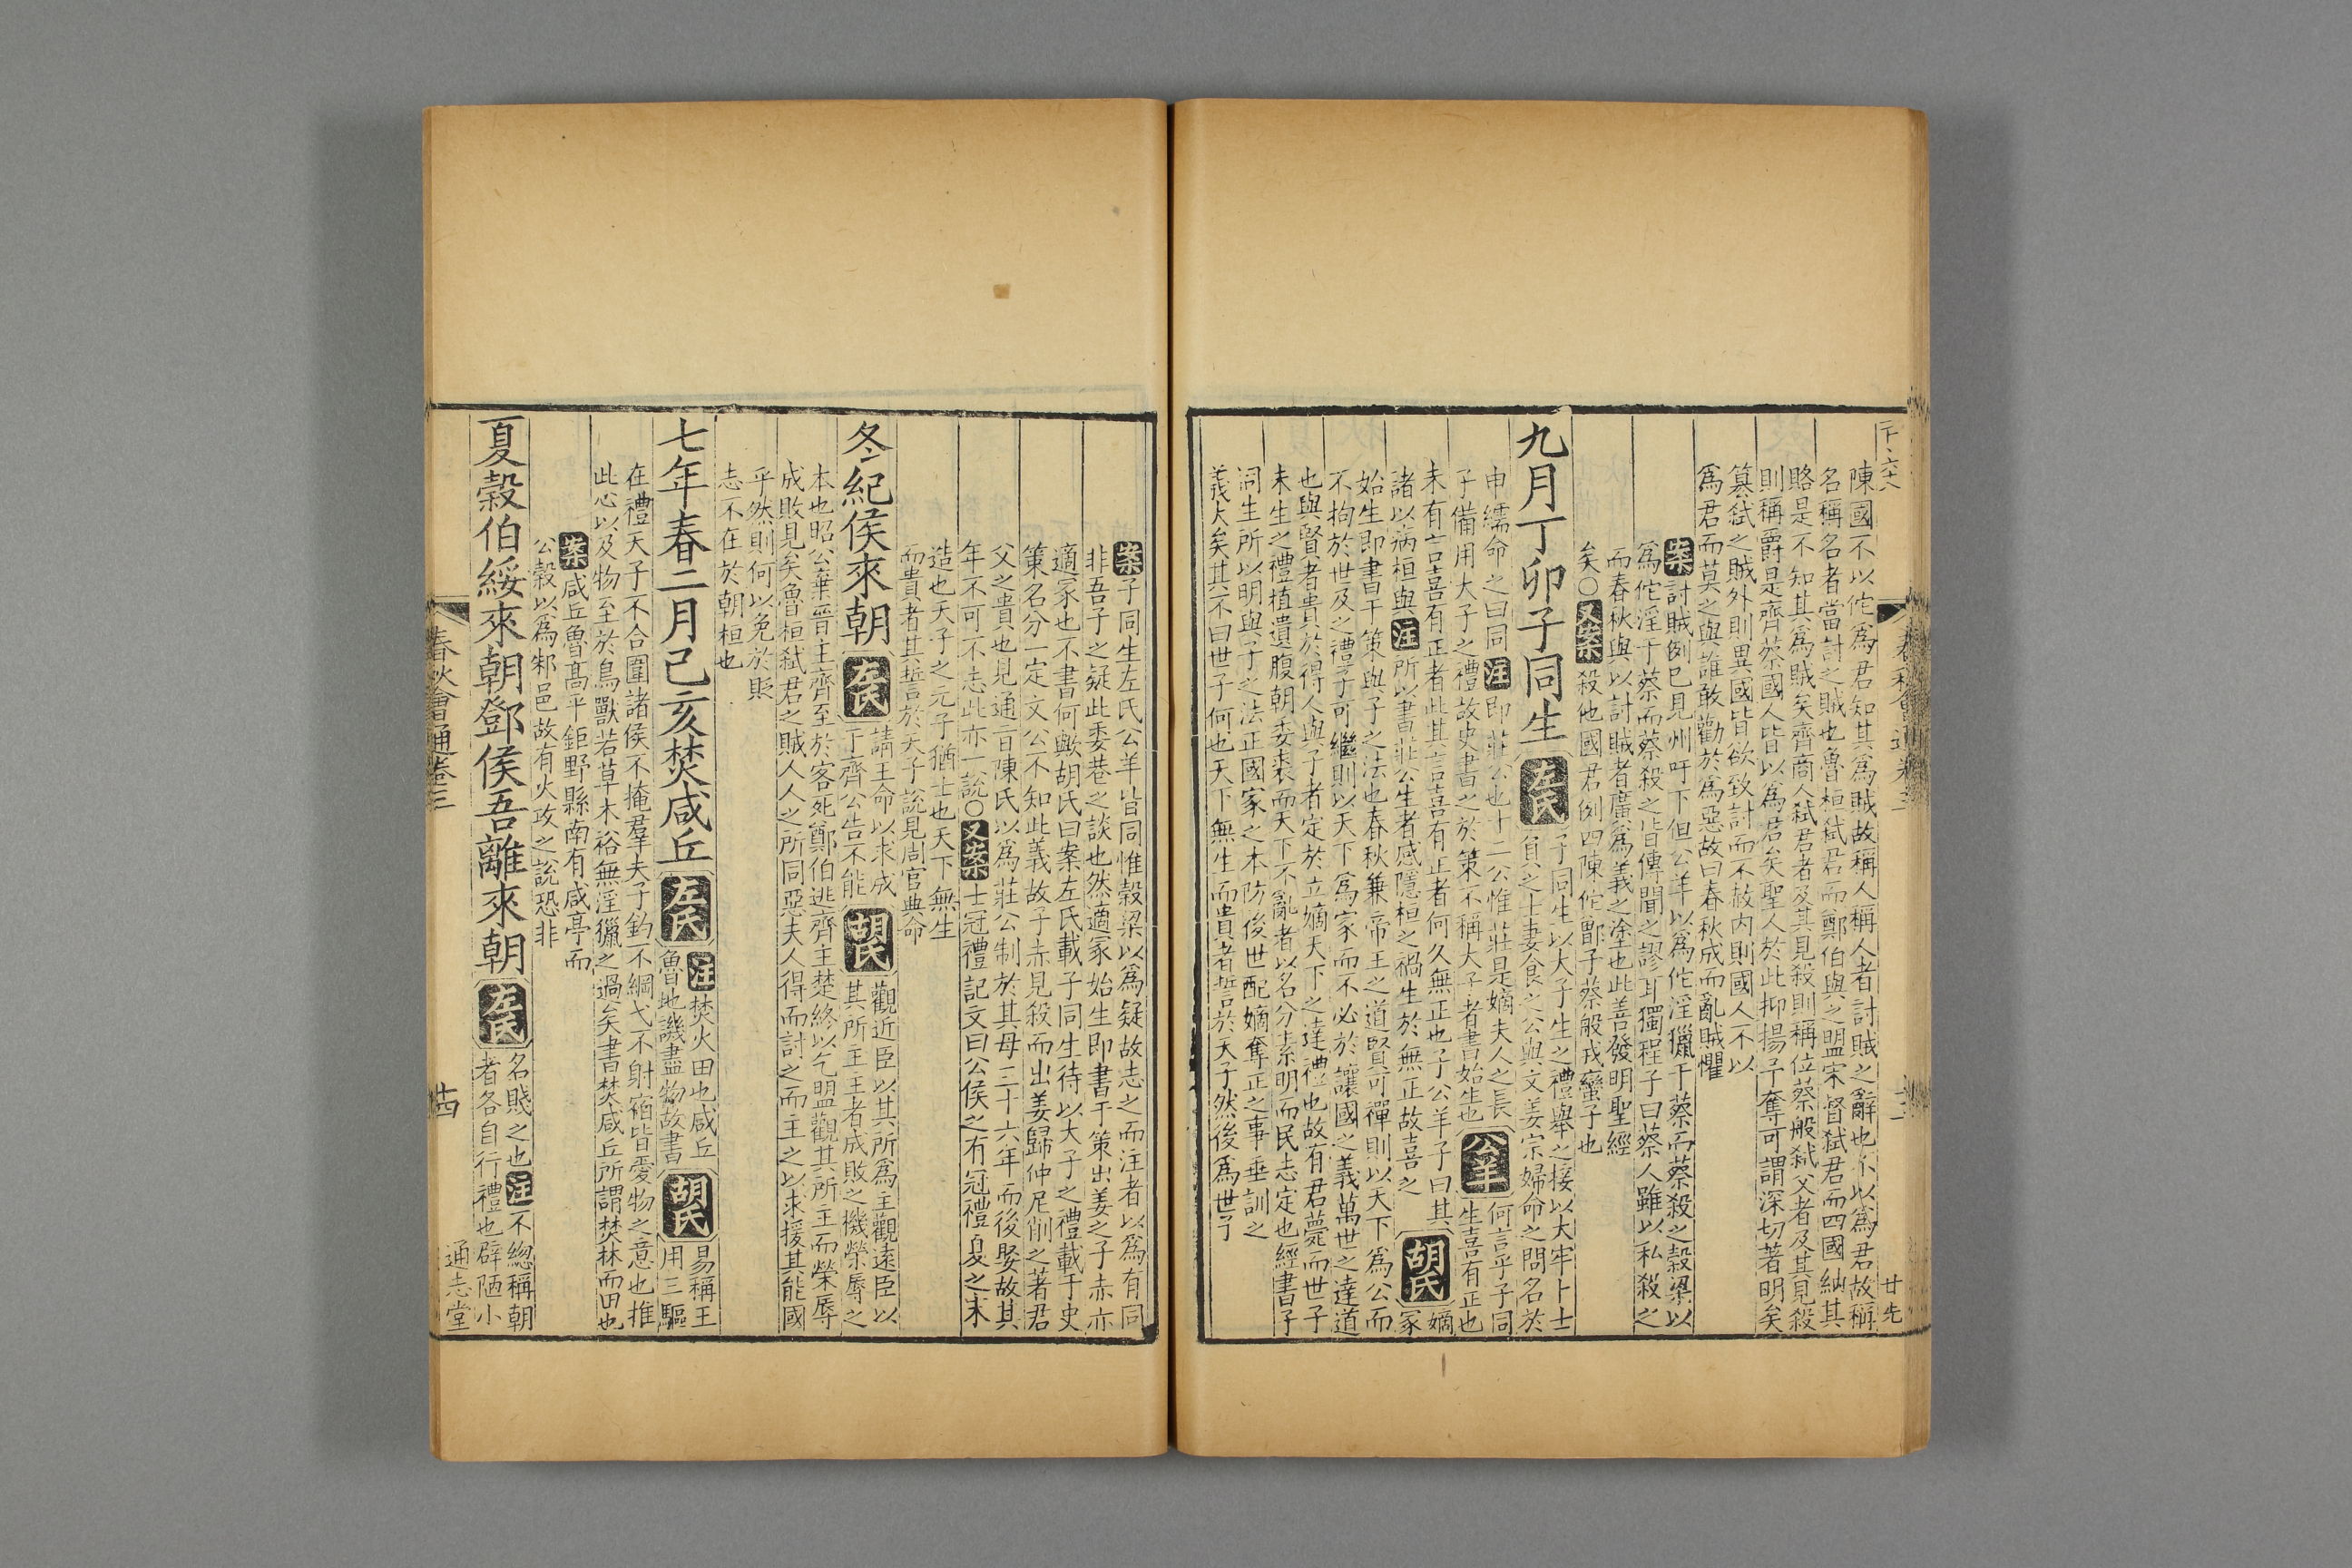 陳國不以佗爲君知其爲賊故稱人稱人者討賊之辭也不以爲君故稱
名稱名者當討之賊也魯桓弑君而鄭伯與之盟宋督弑君而四國納其
賂是不知其爲賊矣齊商人弑君者及其見殺則稱位蔡般弑父者及其見殺
則稱爵是齊蔡國人皆以爲君矣聖人於此抑揚予奪可謂深切著明矣
簒弑之賊外則異國皆欲致討而不赦内則國人不以
爲君而莫之與誰敢勸於爲惡故曰春秋成而亂賊懼
案討賊例已見州吁下但公羊以爲佗淫獵于蔡而蔡殺之穀梁以
爲佗淫于蔡而蔡殺之皆傳聞之謬耳獨程子曰蔡人雖以私殺之
而春秋與以討賊者廣爲義之塗也此善發明聖經
矣○又案殺他國君例四陳佗鄫子蔡般戎蠻子也
九月丁卯子同生左氏子同生以大子生之禮舉之接以大牢卜士
負之士妻食之公與文姜宗婦命之問名於
申繻命之曰同注即莊公也十二公惟莊是嫡夫人之長
子備用大子之禮故史書之於策不稱大子者書始生也公羊何言乎子同
生喜有正也
未有言喜有正者此其言喜有正者何久無正也子公羊子曰其
諸以病桓與注所以書莊公生者感隱桓之禍生於無正故喜之胡氏嫡
冢
始生即書于策與子之法也春秋兼帝王之道賢可禪則以天下爲公而
不拘於世及之禮子可繼則以天下爲家而不必於讓國之義萬世之達道
也與賢者貴於得人與子者定於立嫡天下之達禮也故有君薨而世子
未生之禮植遺腹朝委裘而天下不亂者以名分素明而民志定也經書子
同生所以明與子之法正國家之本防後世配嫡奪正之事垂訓之
義大矣其不曰世子何也天下無生而貴者誓於天子然後爲世子
案子同生左氏公羊皆同惟穀梁以爲疑故志之而注者以爲有同
非吾子之疑此委巷之談也然適冢始生即書于策出姜之子赤亦
適冢也不書何歟胡氏曰案左氏載子同生待以大子之禮載于史
策名分一定文公不知此義故子赤見殺而出姜歸仲尼削之著君
父之貴也見通旨陳氏以爲莊公制於其母三十六年而後娶故其
年不可不志此亦一說○又案士冠禮記文曰公侯之有冠禮夏之末
造也天子之元子猶士也天下無生
而貴者其誓於天子說見周官典命
冬紀侯來朝左氏請王命以求成
于齊公告不能胡氏觀近臣以其所爲主觀遠臣以
其所主主者成敗之機榮辱之
本也昭公棄晉主齊至於客死鄭伯逃齊主楚終以乞盟觀其所主而榮辱
成敗見矣魯桓弑君之賊人人之所同惡夫人得而討之而主之以求援其能國
乎然則何以免於貶
志不在於朝桓也
七年春二月己亥焚咸丘左氏注焚火田也咸丘
魯地譏盡物故書胡氏易稱王
用三驅
在禮天子不合圍諸侯不掩羣夫子釣不綱弋不射宿皆愛物之意也推
此心以及物至於鳥獸若草木裕無淫獵之過矣書焚咸丘所謂焚林而田也
案咸丘魯高平鉅野縣南有咸亭而
公穀以爲邾邑故有火攻之說恐非
夏穀伯綏來朝鄧侯吾離來朝左氏名賤之也注不緫稱朝
者各自行禮也辟陋小
春秋會通卷三
廿四
通志堂